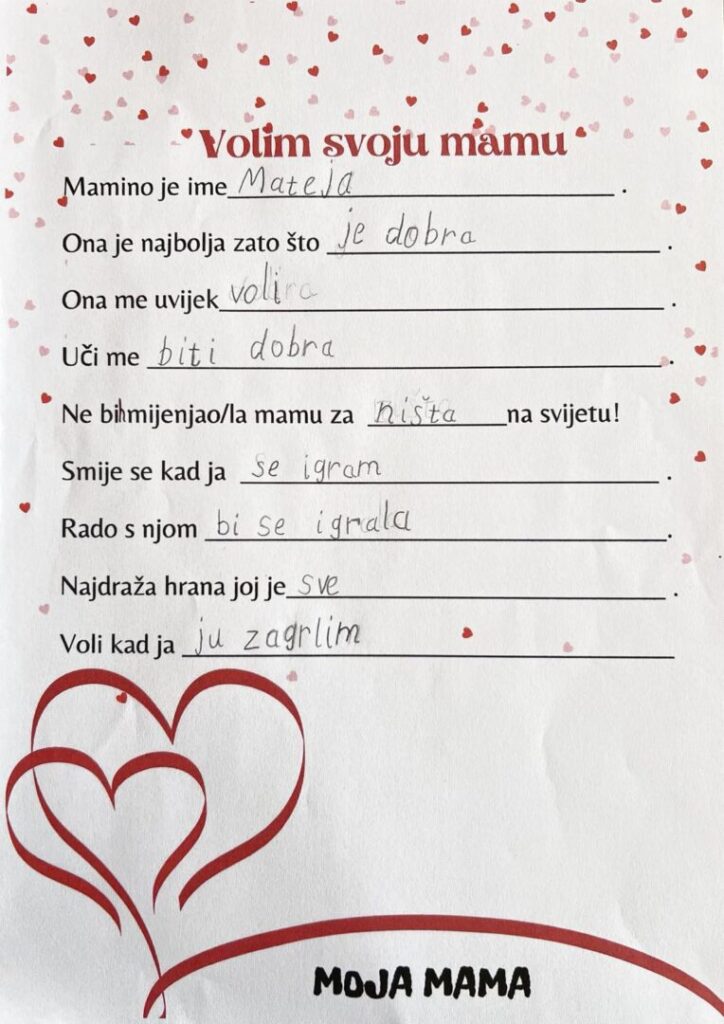 Volim svoju mamu
Mamino je ime Mateja .
Ona je najbolja zato što je dobra .
Ona me uvijek voli .
Uči me biti dobra .
Ne bihmijenjao/la mamu za ništa na svijetu!
Smije se kad ja se igram .
Rado s njom bi se igrala .
Najdraža hrana joj je sve .
Voli kad ja ju zagrlim
MOJA MAMA